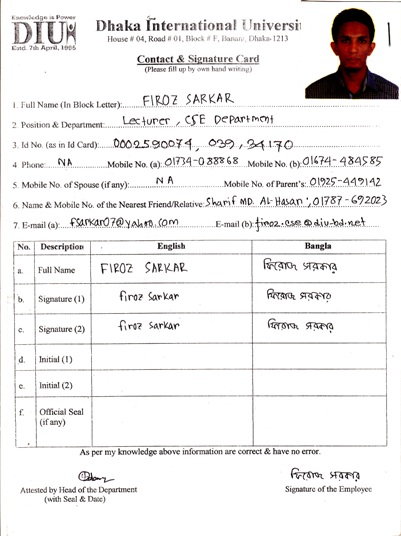 Knowledge is Power
DIU
Estd. 7th April, 1995
Dhaka International Universi
House # 04, Road # 01, Block # F, Banani, Dhaka-1213
Contact & Signature Card
(Please fill up by own hand writing)
1. Full Name (In Block Letter): FIROZ SARKAR
2. Position & Department: Lecturer, CSE Department
3. Id No. (as in Id Card): 0002590074, 039, 34170
4 Phone: NA Mobile No. (a): 01734-088868 Mobile No. (b): 01674-484585
5. Mobile No. of Spouse (if any): NA Mobile No. of Parent's: 01925-449142
6. Name & Mobile No. of the Nearest Friend/Relative: Sharif MD. Al-Hasan, 01787-692023
7. E-mail (a): fsarkar07@yahoo.com E-mail (b): firoz.cse@diu-bd.net
No. Description English Bangla
a. Full Name FIROZ SARKAR ফিরোজ সরকার
b. Signature (1) firoz Sarkar ফিরোজ সরকার
c. Signature (2) firoz Sarkar ফিরোজ সরকার
d. Initial (1)
e. Initial (2)
f. Official Seal
(if any)
As per my knowledge above information are correct & have no error.
ফিরোজ সরকার
Attested by Head of the Department Signature of the Employee
(with Seal & Date)